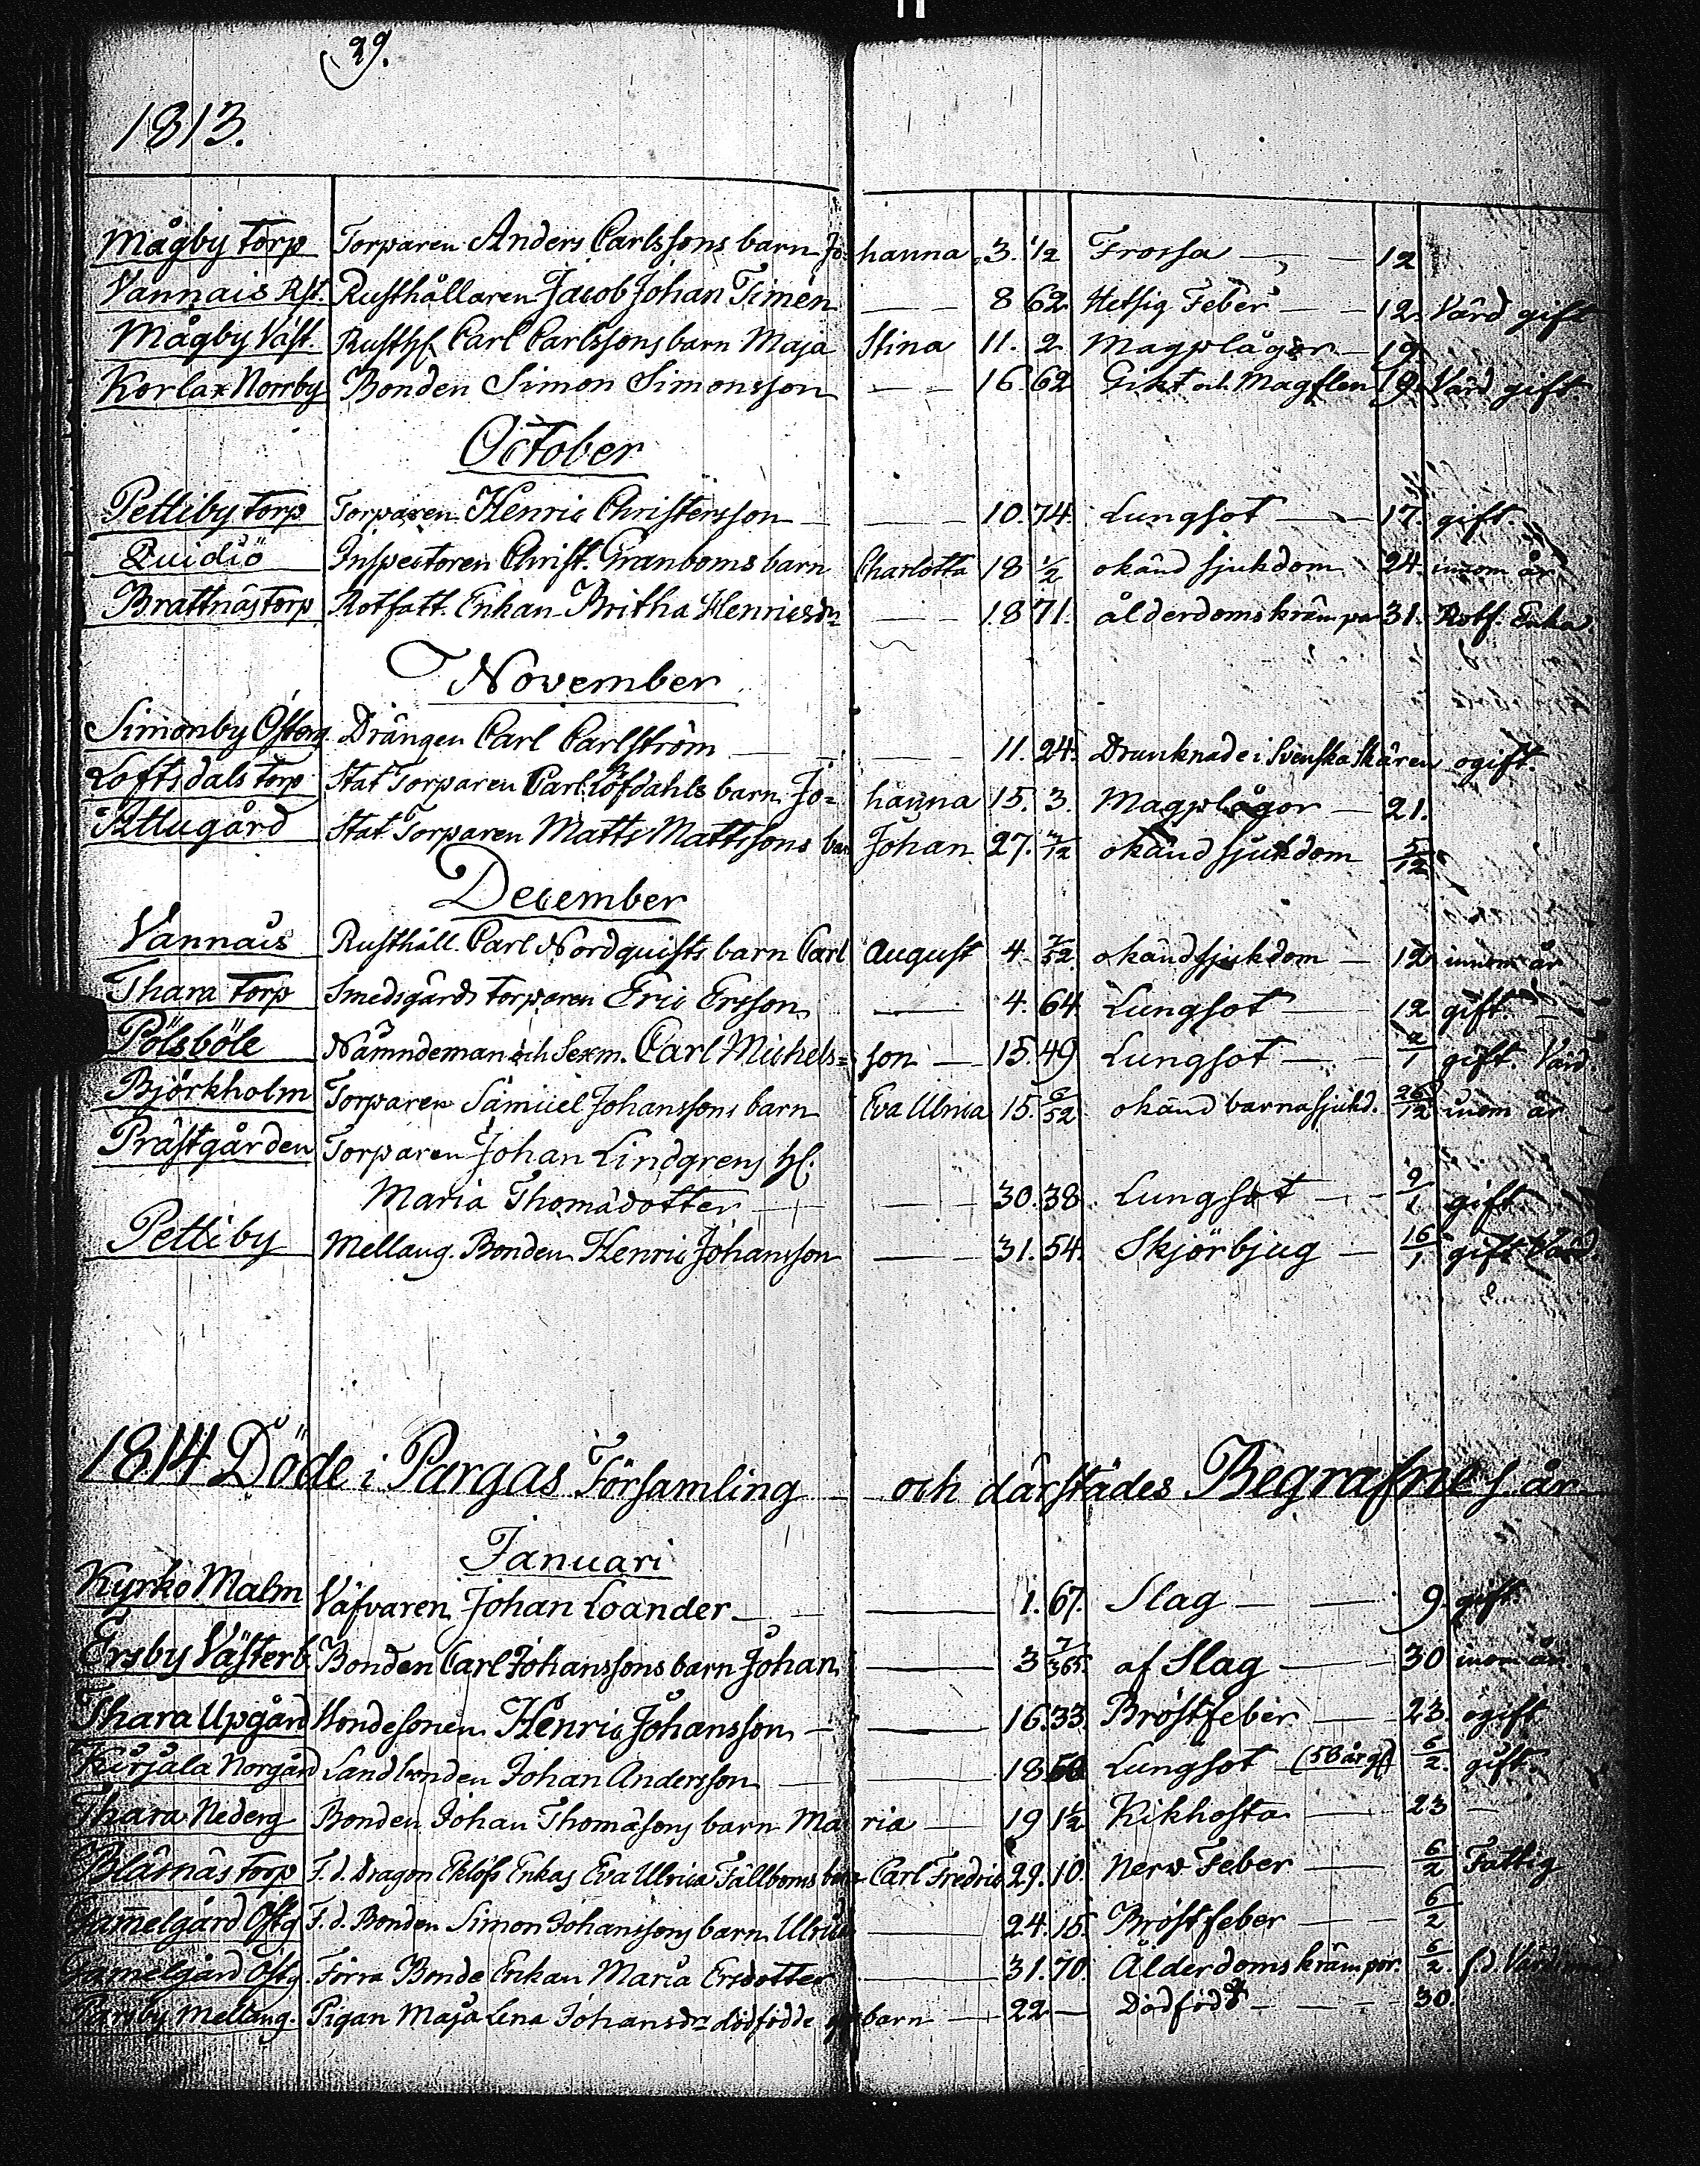 29.
1813.
Mågby Torp Torparen Anders Carlssons barn Johanna 3. 1/2 Frossa — — 12
Vannais Rst. Rusthållaren Jacob Johan Timén — — 8 62 Hetsig Feber — — 12. Värd gift
Mågby Väst. Rusthl Carl Carlssons barn Maja Stina 11. 2 Magplågor — 19.
Korlax Norrby Bonden Simon Simonsson — — 16 62 Gikt och Magflen 19. Värd gift.
October
Pettiby Torp Torparen Henric Christersson — — 10. 74. Lungsot — — 17. gift.
Quidiö Inspectoren Christ. Granboms barn Charlotta 18 1/2 okänd sjukdom 24. innom år
Brattnäs Torp Rotfatt. Enkan Britha Henricsdr — — 18 71. ålderdomskrämpa 31. Rotf. Enka.
November
Simonby Österg Drängen Carl Carlström — — 11. 24. Drunknade i Svenska Skären ogift.
Loftsdals Torp Stat Torparen Carl Löfdahls barn Jo= hanna 15. 3. Magplågor — 21.
Attugård Stat Torparen Matts Mattssons barn Johan 27. 3/12 okänd sjukdom 5/12
December
Vannais Rusthåll. Carl Nordquists barn Carl August 4. 7/52. okänd sjukdom — 12 innom år
Thara Torp Smedsgårds torparen Eric Ersson — 4. 64 Lungsot — 12. gift.
Pölsböle Nämndeman och Sexm. Carl Michels= son — 15. 49 Lungsot — — 2/1 gift. Värd.
Björkholm Torparen Samuel Johanssons barn Eva Ulrica 15. 6/52 okänd barnasjukd. 26/12 inom år
Prästgården Torparen Johan Lindgrens hl.
Maria Thomadotter — — 30. 38 Lungsot — — 9/1 gift.
Pettiby Mellang. Bonden Henric Johansson — 31. 54. Skjörbjug — 16/1 gift Värd.
1814 Döde i Pargas Församling — och därstädes Begrafne s. år
Januari
Kyrko Malm Väfvaren Johan Loander — — 1. 67. Slag — — 9. gift.
Ersby Västerb. Bonden Carl Johanssons barn Johan — 3 7/365. af Slag — — 30 inom år.
Thara Upgård Bondesonen Henric Johansson — — 16. 33. Bröstfeber — 23. ogift
Kirjala Norgård Landbonden Johan Andersson — — 18 Lungsot (58 årg) 6/2. gift.
Thara Nederg Bonden Johan Thomasons barn Ma ria — 19 1 1/2 Kikhosta — 23 —
Blåsnäs Torp F. d. Dragon Eklöfs Enkas Eva Ulrica Fällboms barn Carl Fredric 29. 10. Nerv Feber — 6/2 Fattig
Gamelgård Östg F. d. Bonden Simon Johanssons barn Ulrica — 24. 15. Bröstfeber — — 6/2
Gamelgård Östg. Förra Bonde Enkan Maria Ersdotter — 31. 70. Ålderdomskrämpor. 6/2. f.d.
Parsby Mellang. Pigan Maja Lena Johansdr dödfödde barn — 22 — Dödfödt — — 30.